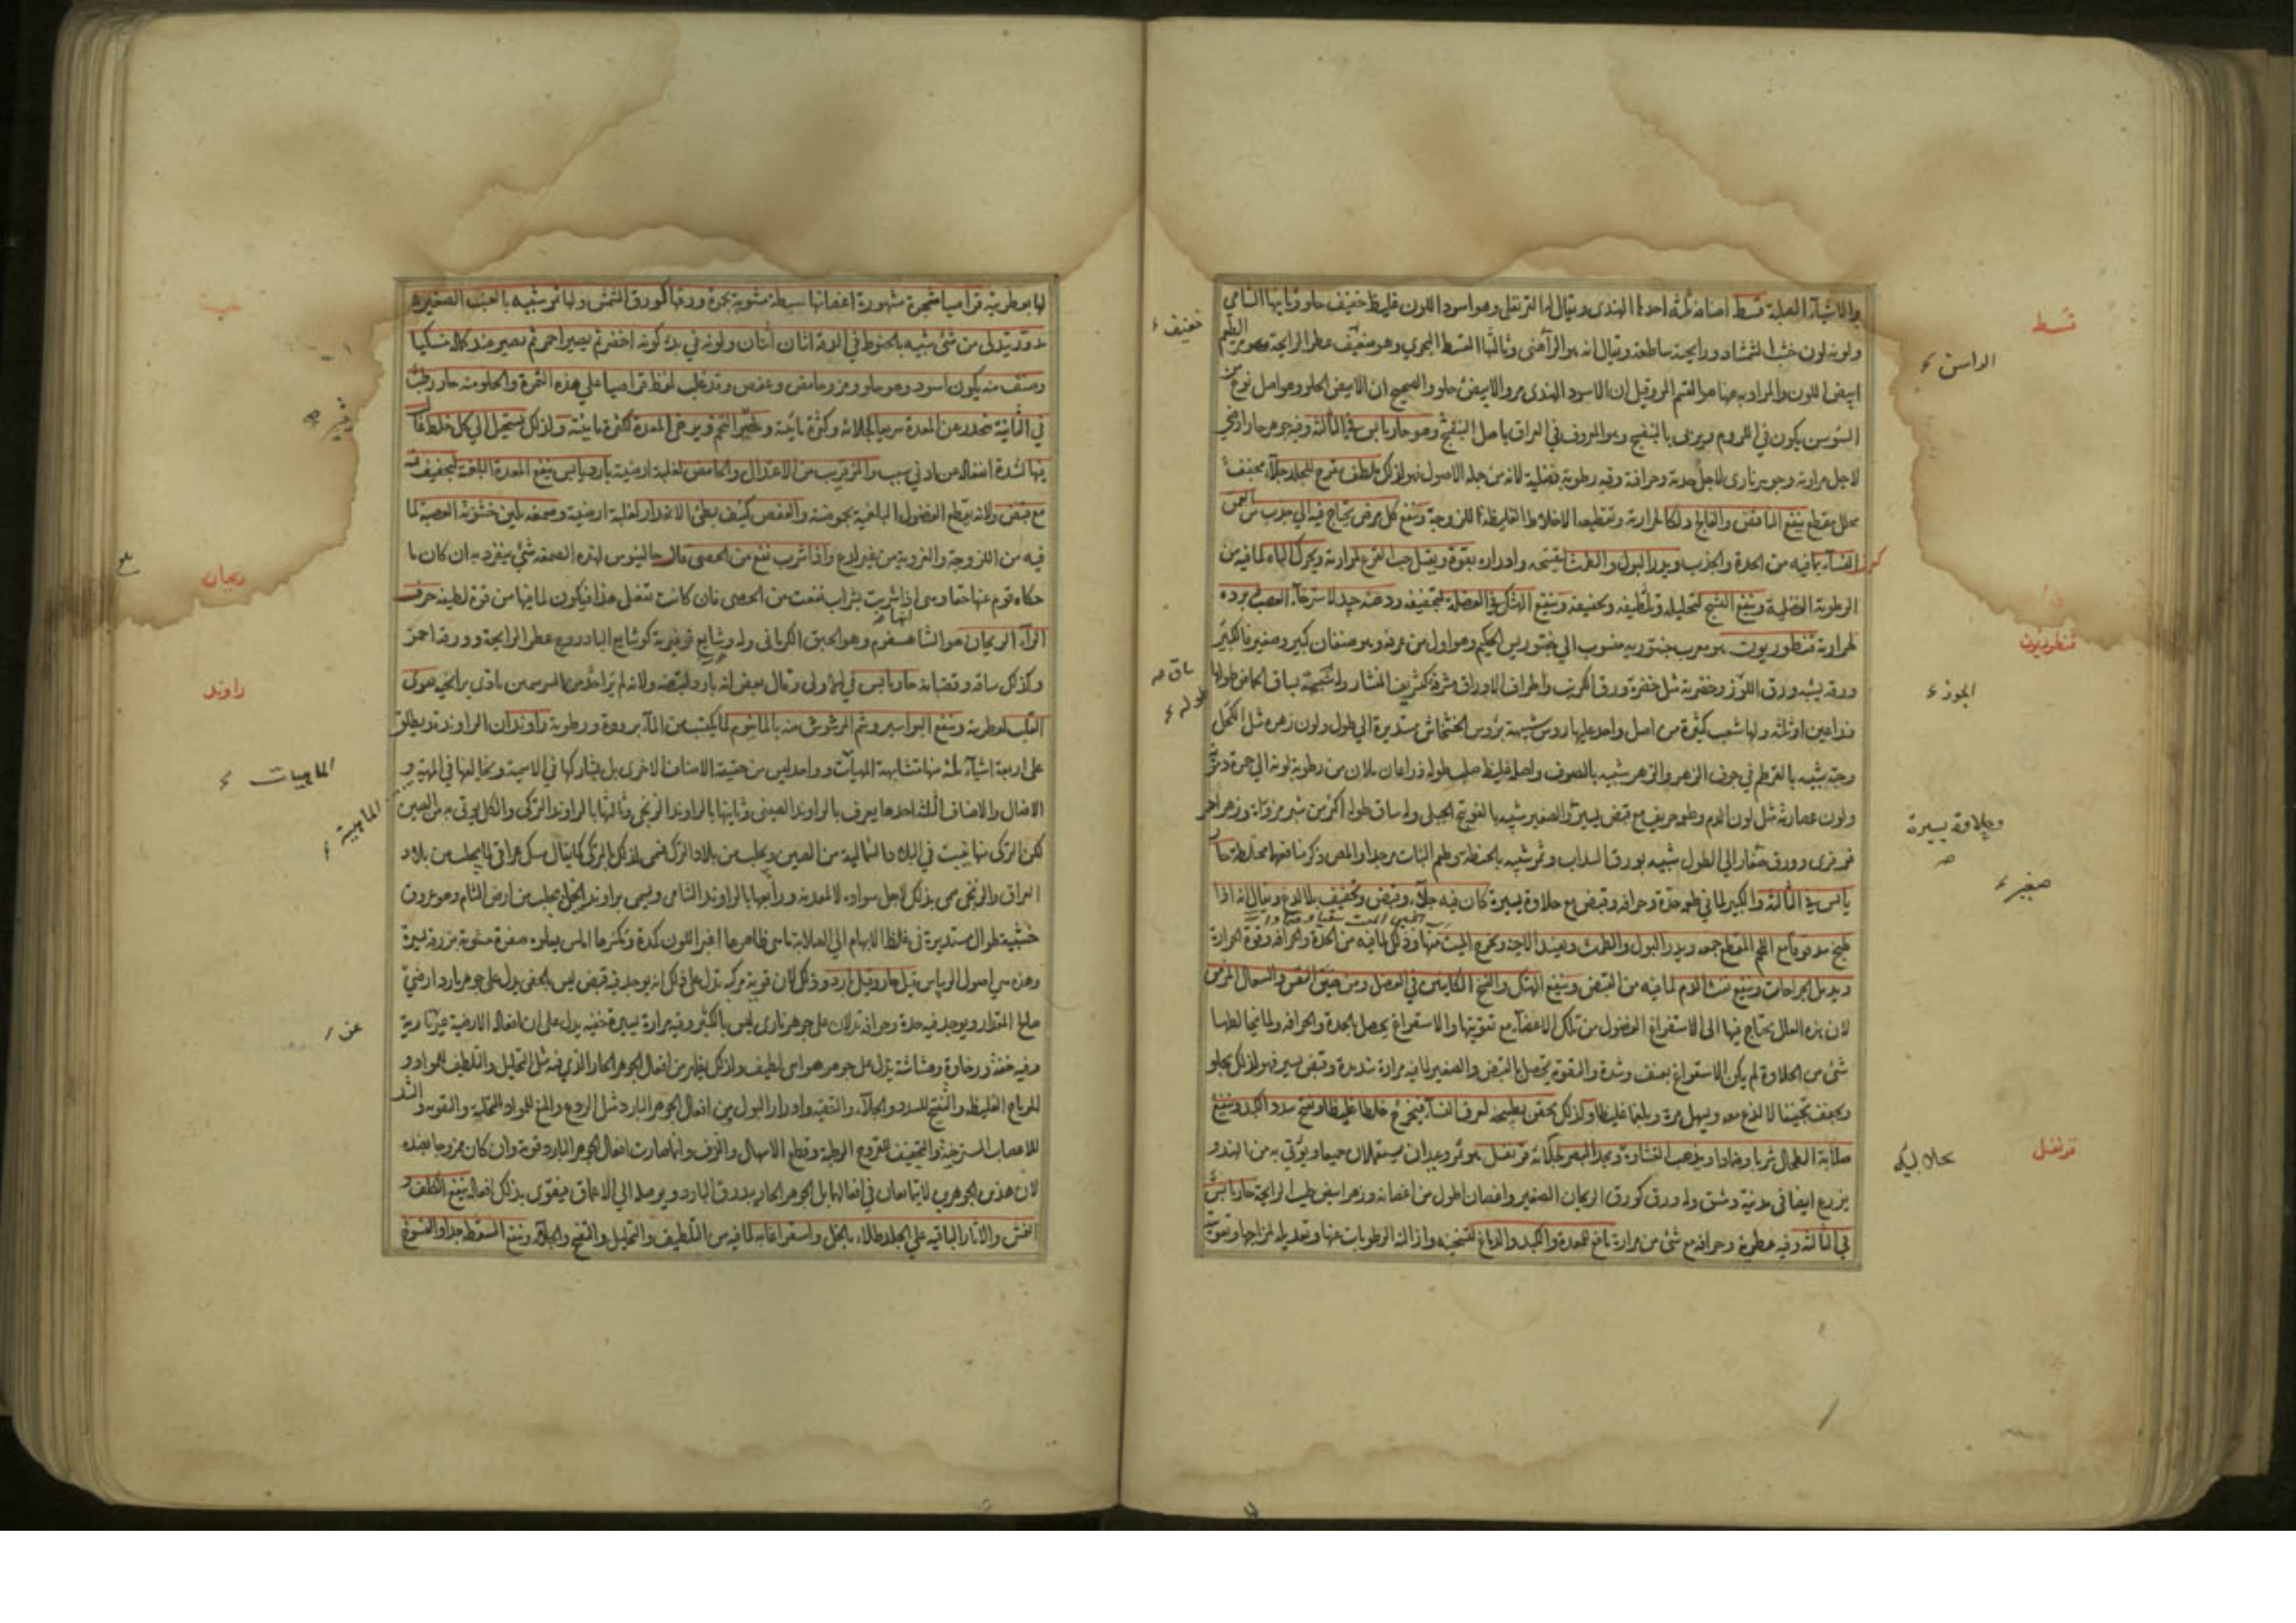 والاشياء الصلبة قسط اصنافه ثلثة احدها الهندى ويقال له القرنفلى وهو اسود اللون غليظ خفيف حلو وثانيها الشامي
ولونه لون خشب الشمشاد ورايحته ساطعة ويقال انه هو الراسن وثالثها القسط البحري وهو خفيف عطر الرايحة
ابيض اللون والمراد به هنا هو القسم المر وقيل ان الاسود الهندى مر والابيض حلو والصحيح ان الابيض الحلو هو اصل نوع من
السوسن يكون في الروم ويعرف بالبنفسج وهو المعروف في العراق باصل البنفسج وهو حار يابس في الثالثة وفيه جوهر حار ارضي
لاجل مرارته وجوهر نارى لاجل حدته وحرافة وفيه رطوبة فضلية لانه من جملة الاصول فهو لذلك ملطف مقرح للجلد جلاء مجفف
محلل مقطع ينفع النافض والفالج ولكا لمرارته وتقطيعه الاخلاط الغليظة اللزوجة وينفع كل مرض يحتاج فيه الي جذب من العمق
النساء بما فيه من الحدة والجذب ويدر البول والطمث لتفتيحه وادراره بقوة ويقتل حب القرع لمرارته ويحرك الباه لما فيه من
الرطوبة الفضلية وينفع التشنج لتحليله وتلطيفه وتجفيفه وينفع الهتك في العضلة لتجفيفه ودهنه جيد لاسترخاء العصب
لمرارته قنطوريون هو معرب منسوب الي الحكيم وهو اول من عرفه وهو صنفان كبير وصغير فالكبير
ورقه يشبه ورق اللوز وخضرته مثل خضرة ورق الكرنب واطراف الاوراق مشرفة كتشريف المنشار وله ساق كساق الحماض طولها
ذراعين او ثلثة ولها شعب كثيرة من اصل واحد عليها روس شبيهة بروس الخشخاش مستديرة الي طول ولون زهره مثل الكحل
وحبه شبيه بالقرطم في جوف الزهر والزهر شبيه بالصوف واصله غليظ صلب طوله ذراعان ملان من رطوبة لونه الي حمرة
ولون عصارته مثل لون الدم وطعمه حريف مع قبض يسير والصغير شبيه بالفوتنج الجبلى وله ساق طوله اكثر من شبر وزهر احمر
فرفرى وورق صغار الي الطول شبيه بورق السداب وثمر شبيه بالحنطة وطعم النبات مر جدا
يابس في الثالثة والكبير لما في طعمه حدة وحرافة وقبض مع حلاوة يسيرة كان فيه جلاء وقبض وتجفيف بلا لذع ويقال انه اذا
طبخ مدقوقا مع اللحم المقطع جمعه ويدر البول والطمث ويفسد الاجنة ويخرج الميت منها وذلك لما فيه من الحدة والحرافة وقوة الحرارة
ويدمل الجراحات وينفع نفث الدم لما فيه من القبض وينفع الهتك والفسخ الكاينين في العضل ومن ضيق النفس والسعال المزمن
لان هذه العلل يحتاج فيها الى الاستفراغ الفضول من تلك الاعضاء مع تقويتها والاستفراغ يحصل بالحدة والحرافة
شئ من الحلاوة لم يكن الاستفراغ بعنف وشدة والتقوة يحصل بالقبض والصغير لما فيه مرارة شديدة وقبض يسير فهو لذلك يجلو
ويجفف تجفيفا لا لذع معه ويسهل مرة وبلغما غليظا ولذلك يحقن بطبيخه لعرق النسا فيخرج خلطا غليظا ويفتح سدد الكبد وينفع
صلابة الطحال شربا وضمادا ويذهب الغشاوة ويحد البصر قرنفل هو ثمر وعيدان يستعملان جميعا ويؤتى به من الهند و
يزرع ايضا في مدينة دمشق وله ورق كورق الريحان الصغير واغصان اطول من اغصانه وزهر ابيض طيب الرايحة حار يابس
في الثالثة وفيه عطرية وحرافة مع شئ من مرارة نافع للمعدة والكبد والدماغ لتسخينه وازالة الرطوبات عنها وتعديله لمزاجها
قسط
الراسن
خفيف
قنطوريون
الجوز
ساق
طوله
وحلاوة يسيرة
صغير
قرنفل
لها بعطريته قراصيا شجرة مشهورة اغصانها سبطة مشوبة بحمرة ورقها كورق المشمش ولها ثمر شبيه بالعنب الصغير
مدور يتدلى من شئ شبيه بالخيوط في الدقة اثنان اثنان ولونه في بدء كونه اخضر ثم يصير احمر ثم يصير عند كماله مسكيا
وصنف منه يكون اسود وهو حلو ومز وحامض وعفص وقد غلب لفظ قراصيا على هذه الثمرة والحلو منه حار رطب
في الثانية تنحدر عن المعدة سريعا لجلائه وكثرة مائيته ويرخى المعدة لكثرة مائيته ولذلك يستحيل الي كل خلط
فيها لشدة انفعاله عن ادنى سبب والمز قريب من الاعتدال والحامض لغلبة ارضيته بارد يابس ينفع المعدة البلغمية لتجفيفه
مع قبض ولانه يقطع الفضول البلغمية بحموضته والعفص كثيف بطئ الانحدار لغلبة ارضيته وصمغه يلين خشونة القصبة لما
فيه من اللزوجة والتغرية من غير لذع واذا شرب نفع من الحصى قال جالينوس لهذه الصمغة شئ ينفرد به ان كان ما
حكاه قوم عنها حقا وهى اذا شربت بشراب نفعت من الحصى فان كانت تفعل هذا فيكون لما فيها من قوة لطيفة حرف
الراء الريحان هو الشاهسفرم وهو الحبق الكرمانى وله وشايع فرفيرية كوشايع البادروج عطر الرايحة وورقه احمر
وكذلك ساقه وقضبانه حار يابس في الاولى وقال بعض انه بارد لقبضه ولانه لم ير احد من المبرسمين تاذى برايحته مقوى
القلب لعطريته وينفع البواسير وشم المرشوش منه بالماء منوم لما يكتسب من الماء برودة ورطوبة راوند ان الراوند قد يطلق
على اربعة اشياء ثلثة منها متشابهة الهيآت وواحد ليس من حقيقة الاصناف الاخرى بل يشاركها في الاسمية ويخالفها في المهية و
الافعال والاصناف الثلثة احدها يعرف بالراوند الصينى وثانيها بالراوند الزنجى وثالثها بالراوند التركى والكل يوتى به من الصين
لكن التركى منها ينبت في البلاد الشمالية من الصين ويجلب من بلاد الترك فسمى لذلك التركى كما يقال مسك عراقى لما يجلب من بلاد
العراق والزنجى سمى بذلك لاجل سواده لا لمعدنه ورابعها بالراوند الشامى ويسمى براوند الخيل يجلب من ارض الشام وهو عروق
خشبية طوال مستديرة في غلظ الابهام الي الصلابة ما هى ظاهرها اغبر اللون كمدة ومكسرها املس يعلوه صفرة مشوبة بزرقة يسيرة
وهذه هي اصول الريباس قيل حار وقيل بارد وذلك لان قوته مركبة تدل على ذلك انه يوجد فيه قبض ليس بالخفى يدل على جوهر بارد ارضى
صالح المقدار ويوجد فيه حدة وحرافة تدلان على جوهر نارى ليس بالكثير وفيه مرارة يسيرة خفية يدل على ان افعاله الارضية غير نارية
وفيه خفة ورخاوة وهشاشة يدل على جوهر هوائى لطيف ولذلك يظهر من افعال الجوهر الحار الذي فيه مثل التحليل والتلطيف للمواد و
للرياح الغليظة والتفتيح للسدد والجلاء والتنقية وادرار البول ومن افعال الجوهر البارد مثل الردع والمنع للمواد المتحلبة والتقوية والشد
للاعصاب المسترخية والتجفيف للقروح الرطبة وقطع الاسهال والنزف وانما صارت افعال الجوهر البارد قوية وان كان ممزوجا بضده
لان هذين الجوهرين لا يتمانعان في افعالهما بل الجوهر الحار يبدرق البارد ويوصله الي الاعماق فيقوى بذلك افعاله ينفع الكلف و
النمش والاثار الباقية على الجلد طلاء بالخل لما فيه من التلطيف والتحليل والتفتيح والجلاء وينفع السقطة جدا والفسوخ
ريحان
راوند
الماهيات
الماهية
عن